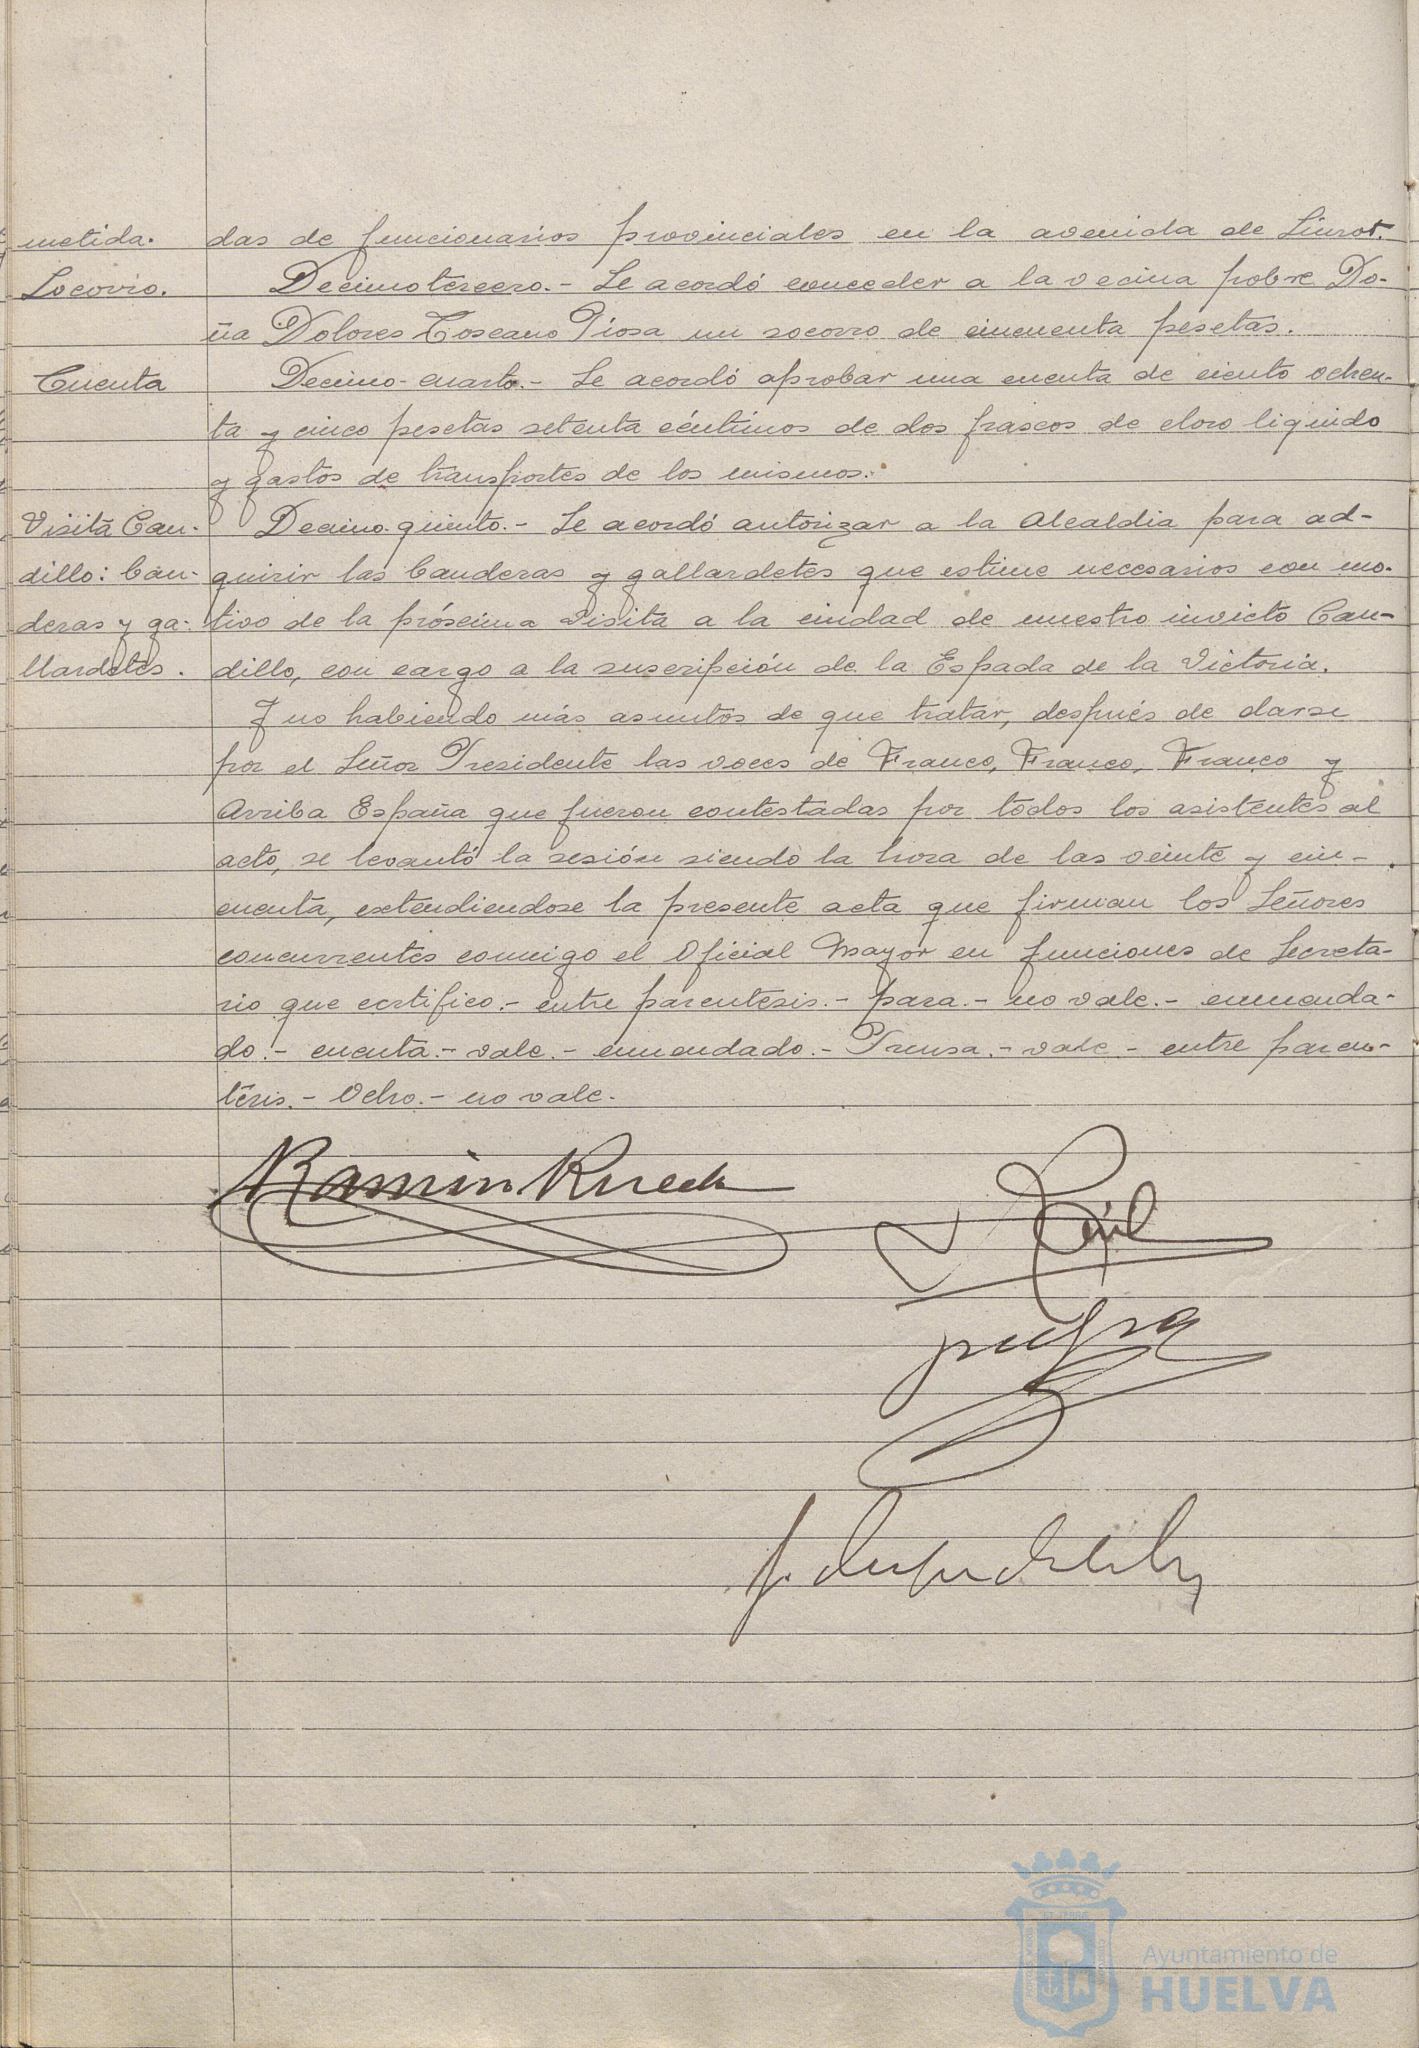 metida. das de funcionarios provinciales en la avenida de
Socorro. Decimotercero.- Se acordó conceder a la vecina pobre Do-
ña Dolores Toscano Piosa un socorro de cincuenta pesetas.
Cuenta Decimo-cuarto.- Se acordó aprobar una cuenta de ciento ochen-
ta y cinco pesetas setenta céntimos de dos frascos de cloro liquido
y gastos de transportes de los mismos.
Visita Cau- Decimo-quinto.- Se acordó autorizar a la Alcaldia para ad-
dillo: ban- quirir las banderas y gallardetes que estime necesarios con mo-
deras y ga- tivo de la próxima visita a la ciudad de nuestro invicto Cau-
llardetes. dillo, con cargo a la suscripción de la Espada de la Victoria.
Y no habiendo más asuntos de que tratar, después de darse
por el Señor Presidente las voces de Franco, Franco, Franco y
Arriba España que fueron contestadas por todos los asistentes al
acto, se levantó la sesión siendo la hora de las veinte y cin-
cuenta, extendiendose la presente acta que firman los Señores
concurrentes conmigo el Oficial Mayor en funciones de Secreta-
rio que certifico.- entre parentesis.- para.- no vale.- enmenda-
do.- cuenta.- vale.- enmendado.- Prensa.- vale.- entre paren-
tesis.- Ocho.- no vale.
Ramón
Ayuntamiento de
HUELVA